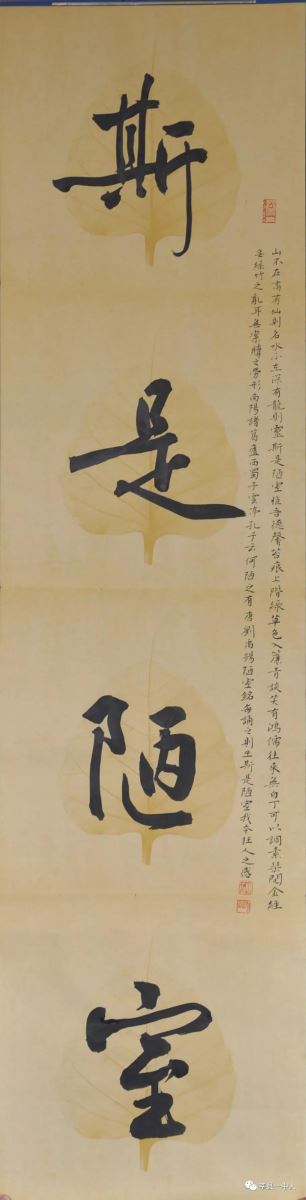 斯是陋室
山不在高有仙则名水不在深有龍則靈斯是陋室惟吾德馨苔痕上階綠草色入簾青談笑有鴻儒往來無白丁可以調素琴閱金經
無絲竹之亂耳無案牘之勞形南陽諸葛廬西蜀子雲亭孔子云何陋之有唐劉禹錫陋室銘每誦之則生斯是陋室我本狂人之感